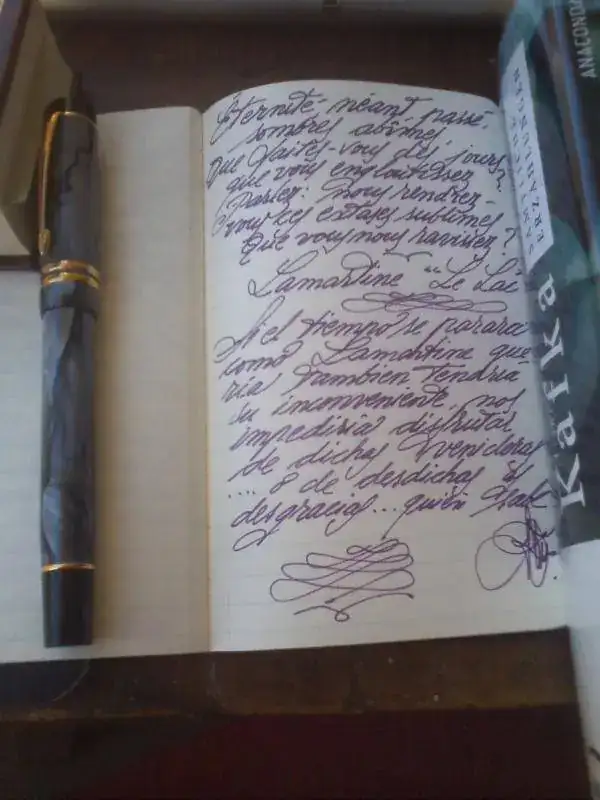 Eternité, néant, passé,
sombres abîmes,
Que faites-vous des jours
que vous engloutissez?
Parlez: nous rendrez-
vous ces extases sublimes
Que vous nous ravissez?
Lamartine "Le Lac
Si el tiempo se parara
como Lamartine que-
ría tambien tendría
su inconveniente, nos
impediría disfrutar
de dichas venideras
.... o de desdichas y
desgracias... quién sabe
Kafka
ERZÄHLUNGEN
SÄMTLICHE
ANACONDA